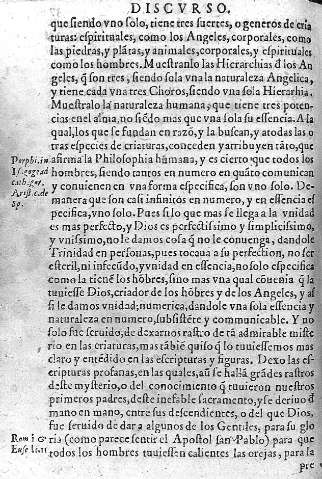 DISCVRSO.
que siendo vno solo, tiene tres suertes, o generos de cria
turas: espirituales, como los Angeles, corporales, como
las piedras, y plãtas, y animales, corporales, y espirituales
como los hombres. Muestranlo las Hierarchias d̃ los An
geles, q̃ son tres, siendo sola vna la naturaleza Angelica,
y tiene cada vna tres Choros, siendo vna sola Hierarhia.
Muestralo la naturaleza humana, que tiene tres poten
cias en el alma, no siẽdo mas que vna sola su essencia. A la
qual, los que se fundan en razõ, y la buscan, y a todas las o
tras especies de criaturas, conceden y atribuyen tãto, que
Porphi. in
afirma la Philosophia humana, y es cierto que todos los
Isagog. ad
hombres, siendo tantos en numero en quãto comunican
cathegor.
y conuienen en vna forma especifica, son vno solo. De-
Arist. c. de
manera que son casi infinitos en numero, y en essencia es
sp.
pecifica, vno solo. Pues si lo que mas se llega a la vnidad
es mas perfecto, y Dios es perfectissimo y simplicissimo,
y vnissimo, no le damos cosa q̃ no le conuenga, dandole
Trinidad en personas, pues tocaua a su perfection, no ser
esteril, ni infecũdo, y vnidad en essencia, no solo especifica
como la tienẽ los hõbres, sino mas vna qual cõuenia q̃ la
tuuiesse Dios, criador de los hõbres y de los Angeles, y as
si le damos vnidad; numerica, dandole vna sola essencia y
naturaleza en numero, subsistẽte y communicable. Y no
solo fue seruido, de dexarnos rastro de tã admirable miste
rio en las criaturas, mas tãbiẽ quiso q̃ lo tuuiessemos mas
claro y entẽdido en las escripturas y figuras. Dexo las es
cripturas profanas, en las quales, aũ se hallã grãdes rastros
deste mysterio, o del conocimiento q̃ tuuieron nuestros
primeros padres, deste inefable sacramento, y se deriuo d̃
mano en mano, entre sus descendientes, o del que Dios,
fue seruido de dar a algunos de los Gentiles, para su glo
Rom. i
ria (como parece sentir el Apostol san Pablo) para que
todos los hombres tuuiessen calientes las orejas, para la
pre